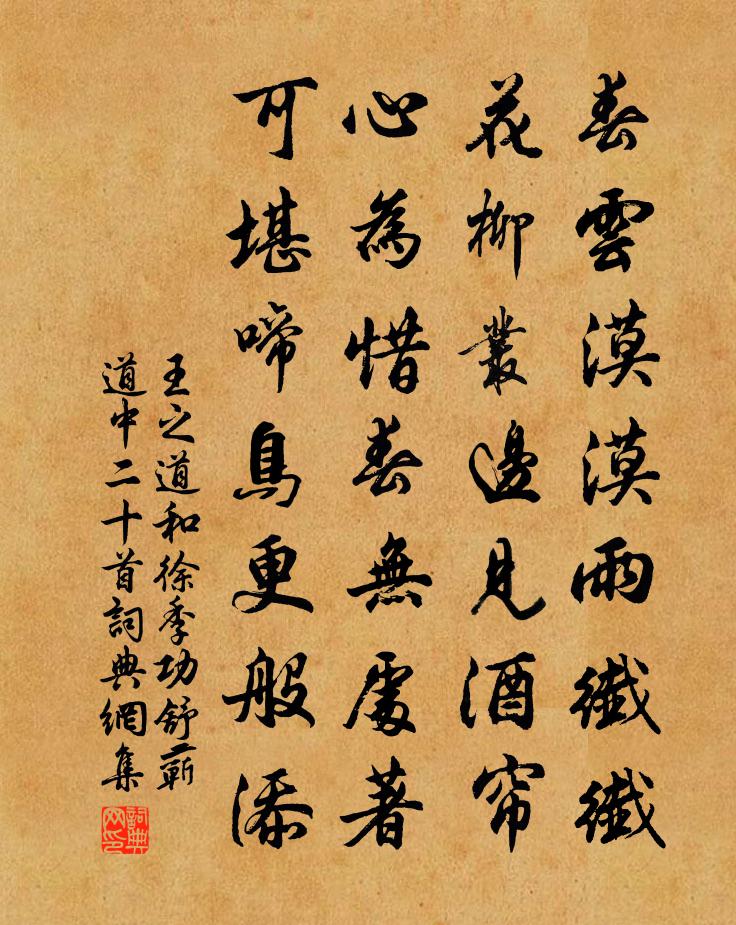 春雲漠漠雨纖纖
花柳叢邊見酒帘
心為惜春無處著
可堪啼鳥更般添
王之道和徐季功舒蘄
道中二十首詞典網集
詞典
网印